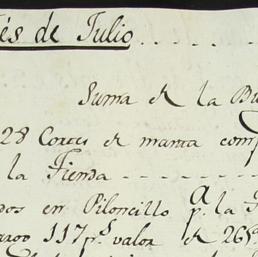 és de Julio
Suma de la Bu
28 Cortes de manta comp
la Tienda
dos en Piloncillo p.ª la T
argo 117 p.s valor de 265